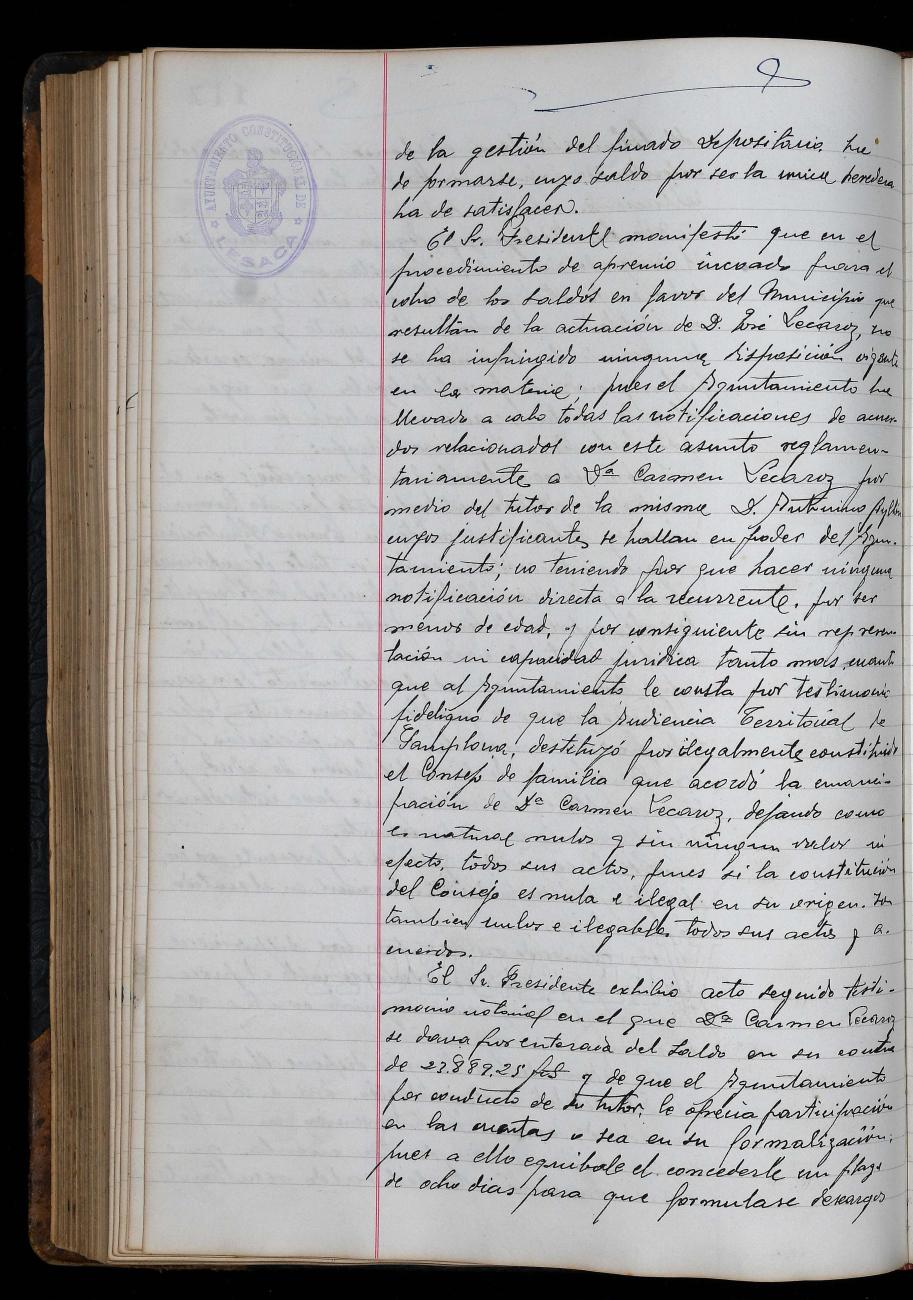 AYUNTAMIENTO CONSTITUCIONAL DE
LESACA
de la gestión del finado Depositario ha
de formarse, cuyo saldo por ser la unica heredera
ha de satisfacer.
El Sr. Presidente manifestó que en el
procedimiento de apremio incoado para el
cobro de los saldos en favor del Municipio que
resultan de la actuación de D. José Lecaroz, no
se ha infringido ninguna disposición vigente
en la materia; pues el Ayuntamiento ha
llevado a cabo todas las notificaciones de acuer-
dos relacionados con este asunto reglamen-
tariamente a Dª Carmen Lecaroz por
medio del tutor de la misma D. Antonino
cuyos justificantes se hallan en poder del Ayun-
tamiento; no teniendo por que hacer ninguna
notificación directa a la recurrente, por ser
menor de edad, y por consiguiente sin represen-
tación ni capacidad juridica tanto mas cuanto
que al Ayuntamiento le consta por testimonio
fideligno de que la Audiencia Territorial de
Pamplona, destituyó por ilegalmente constituido
el Consejo de familia que acordó la emanci-
pación de Dª Carmen Lecaroz, dejando como
es natural nulos y sin ningun valor ni
efecto, todos sus actos, pues si la constitución
del Consejo es nula e ilegal en su origen, son
tambien nulos e ilegables todos sus actos y a-
cuerdos.
El Sr. Presidente exhibió acto seguido testi-
monio notarial en el que Dª Carmen Lecaroz
se dava por enterada del saldo en su contra
de 23.889,25 pts y de que el Ayuntamiento
por conducto de su tutor, le ofrecia participación
en las cuentas o sea en su formalización;
pues a ello equibale el concederle un plazo
de ocho dias para que formulase descargos